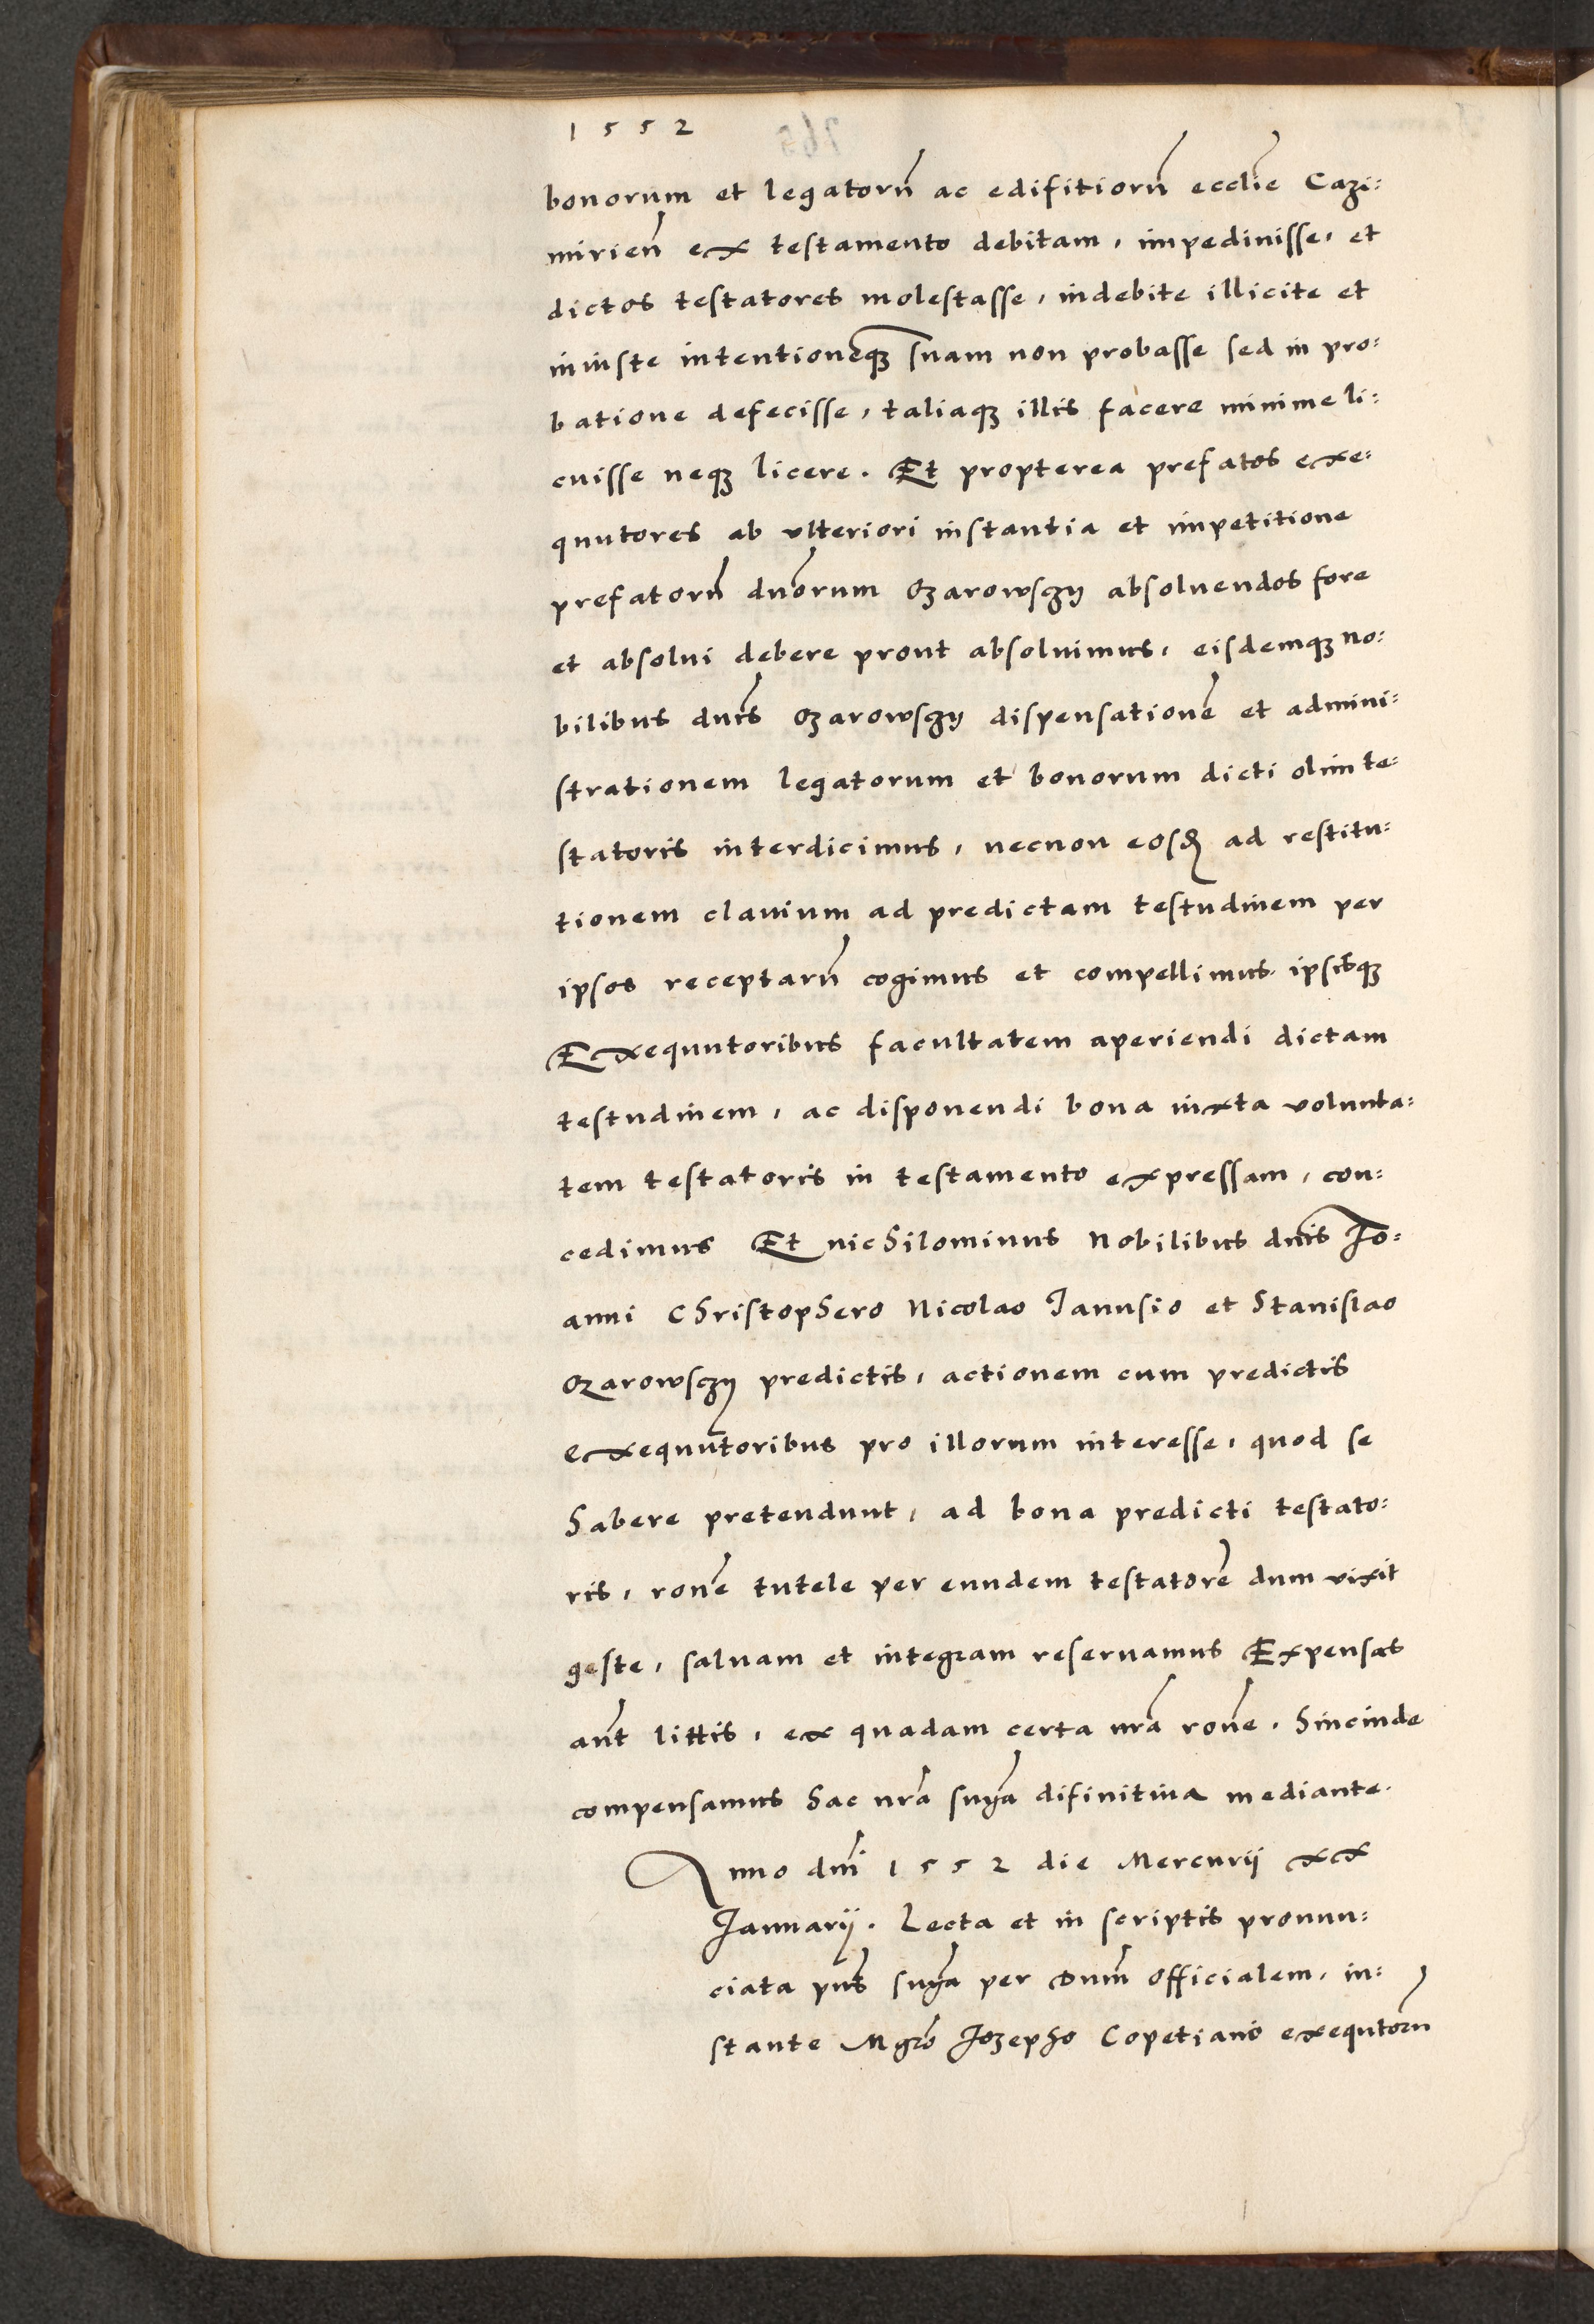 1552
bonorum et legatorũ ac edifitiorũ ecclie̅ Cazi:
mirien̅ ex testamento debitam, impediuisse, et
dictos testatores molestasse, indebite illicite et
iniuste intentione̅qꝫ suam non probasse sed in pro:
batione defecisse, taliaqꝫ illis facere minime li:
cuisse neqꝫ licere. Et propterea prefatos exe:
quutores ab vlteriori instantia et impetitione
prefatorũ dn̅orum Ozarowsczÿ absoluendos fore
et absolui debere prout absoluimus, eisdemqꝫ no:
bilibus dn̅is Ozarowsczÿ dispensatione̅ et admini:
strationem legatorum et bonorum dicti olim te:
statoris interdicimus, necnon eosd̅ ad restitu:
tionem clauium ad predictam testudinem per
ipsos receptarũ cogimus et compellimus, ipsisqꝫ
Exequutoribus facultatem aperiendi dictam
testudinem, ac disponendi bona iuxta volunta:
tem testatoris in testamento expressam, con:
cedimus Et nichilominus Nobilibus dn̅is Jo:
anni Christophero Nicolao Janusio et Stanislao
Ozarowsczÿ predictis, actionem cum predictis
exequutoribus pro illorum interesse, quod se
habere pretendunt, ad bona predicti testato:
ris, ron̅e tutele per eundem testatore̅ dum vixit
geste, saluam et integram reseruamus Expensas
aut̅ littis, ex quadam certa nr̅a ron̅e, hincinde
compensamus hac nr̅a sn̅ya difinitiua mediante.
Anno dn̅i 1552 die Mercurij xx
Januarij. Lecta et in scriptis pronun:
ciata pn̅s sn̅ya per Dn̅m Officialem, in:
stante Mgr̅o Jozepho Copetiano exequtorũ